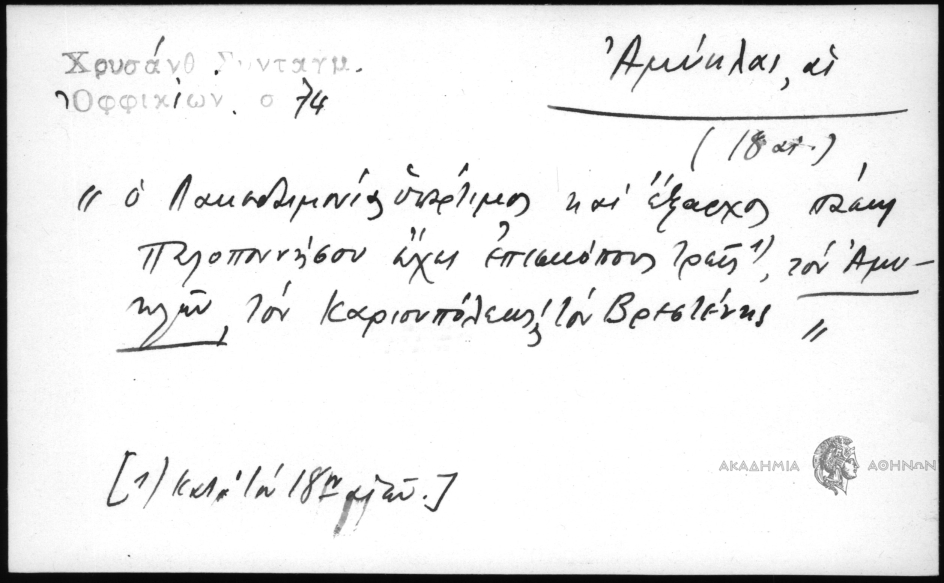 Χρυσάνθ. Συνταγμ.
Ὀφφικίων. σ 74
Ἀμύκλαι, αἱ
(18 αι.)
" ὁ Λακεδαιμονίας ὑπέρτιμος καὶ ἔξαρχος πάσης
Πελοποννήσου ἔχει ἐπισκόπους τρεῖς 1), τὸν Ἀμυ-
κλῶν, τὸν Καριουπόλεως, τὸν Βρεστένης "
[1) κατὰ τὸν 18ον αἰῶνα.]
ΑΚΑΔΗΜΙΑ ΑΘΗΝΩΝ